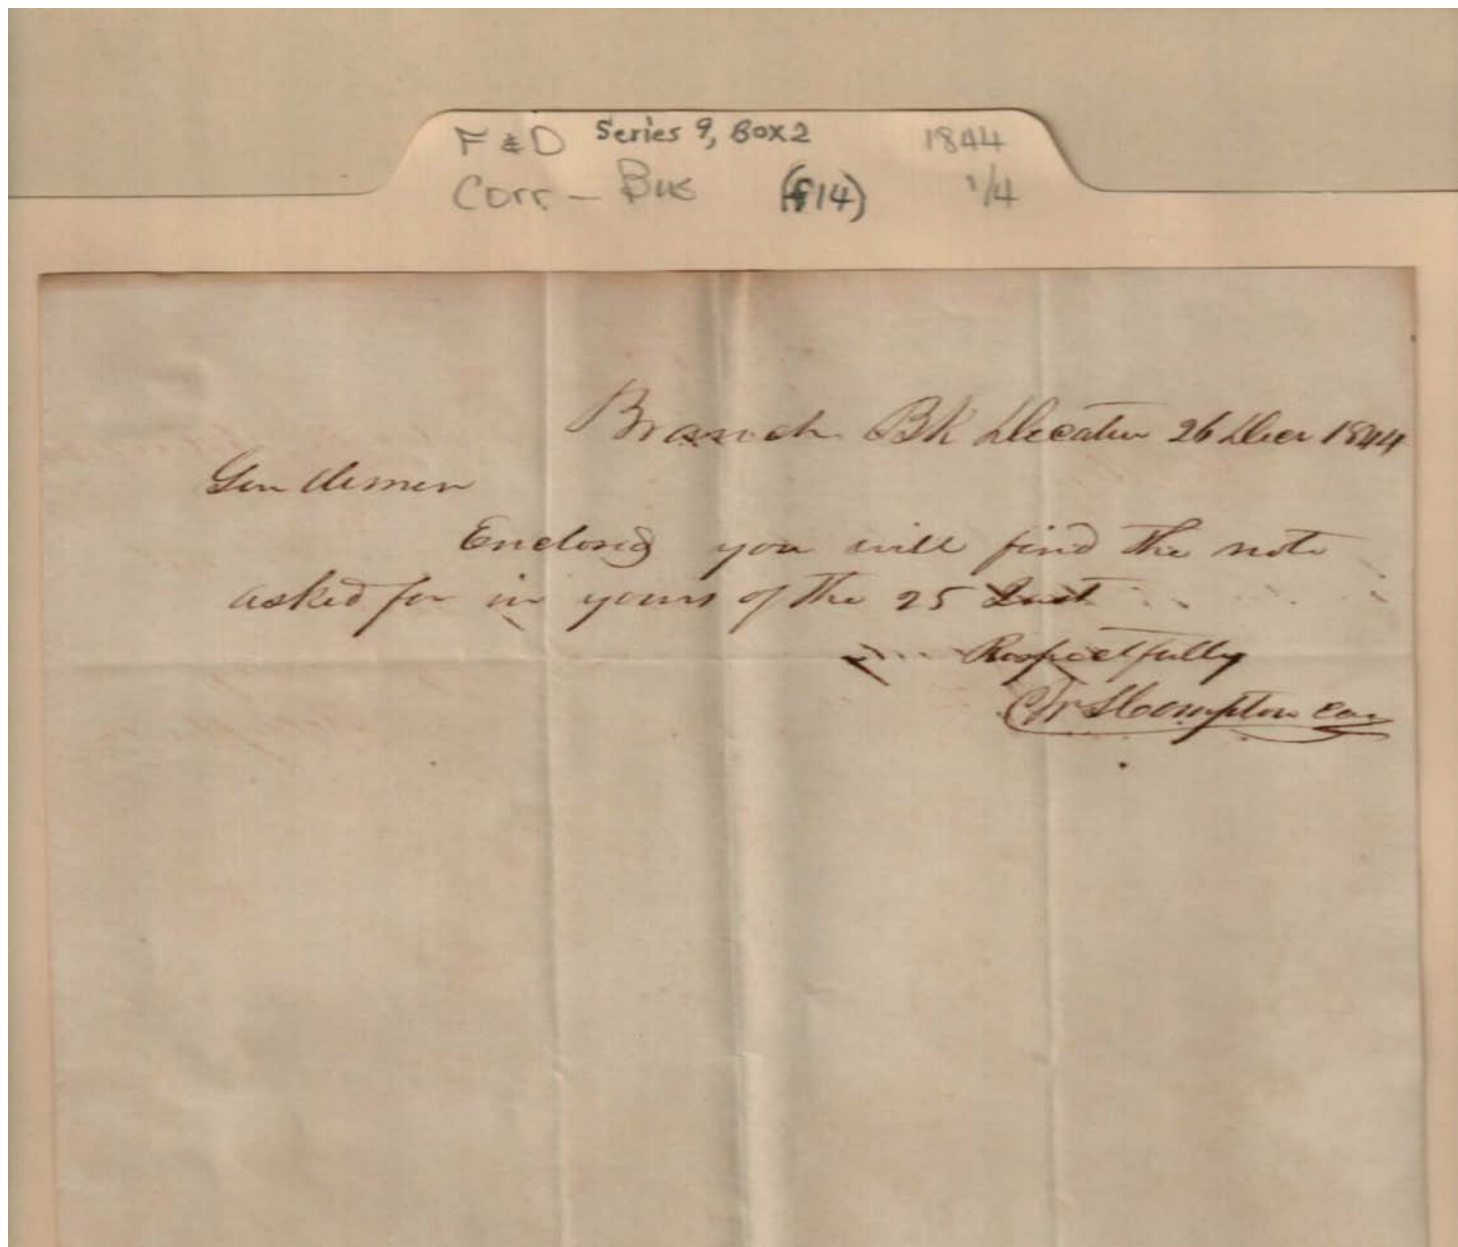 F & D Series 9, Box 2 1844
Corr - Bus (f14) 1/4
Branch Bk Decatur 26 Decr 1844
Gentlemen
Enclosed you will find the note
asked for in yours of the 25 Inst
Respectfully